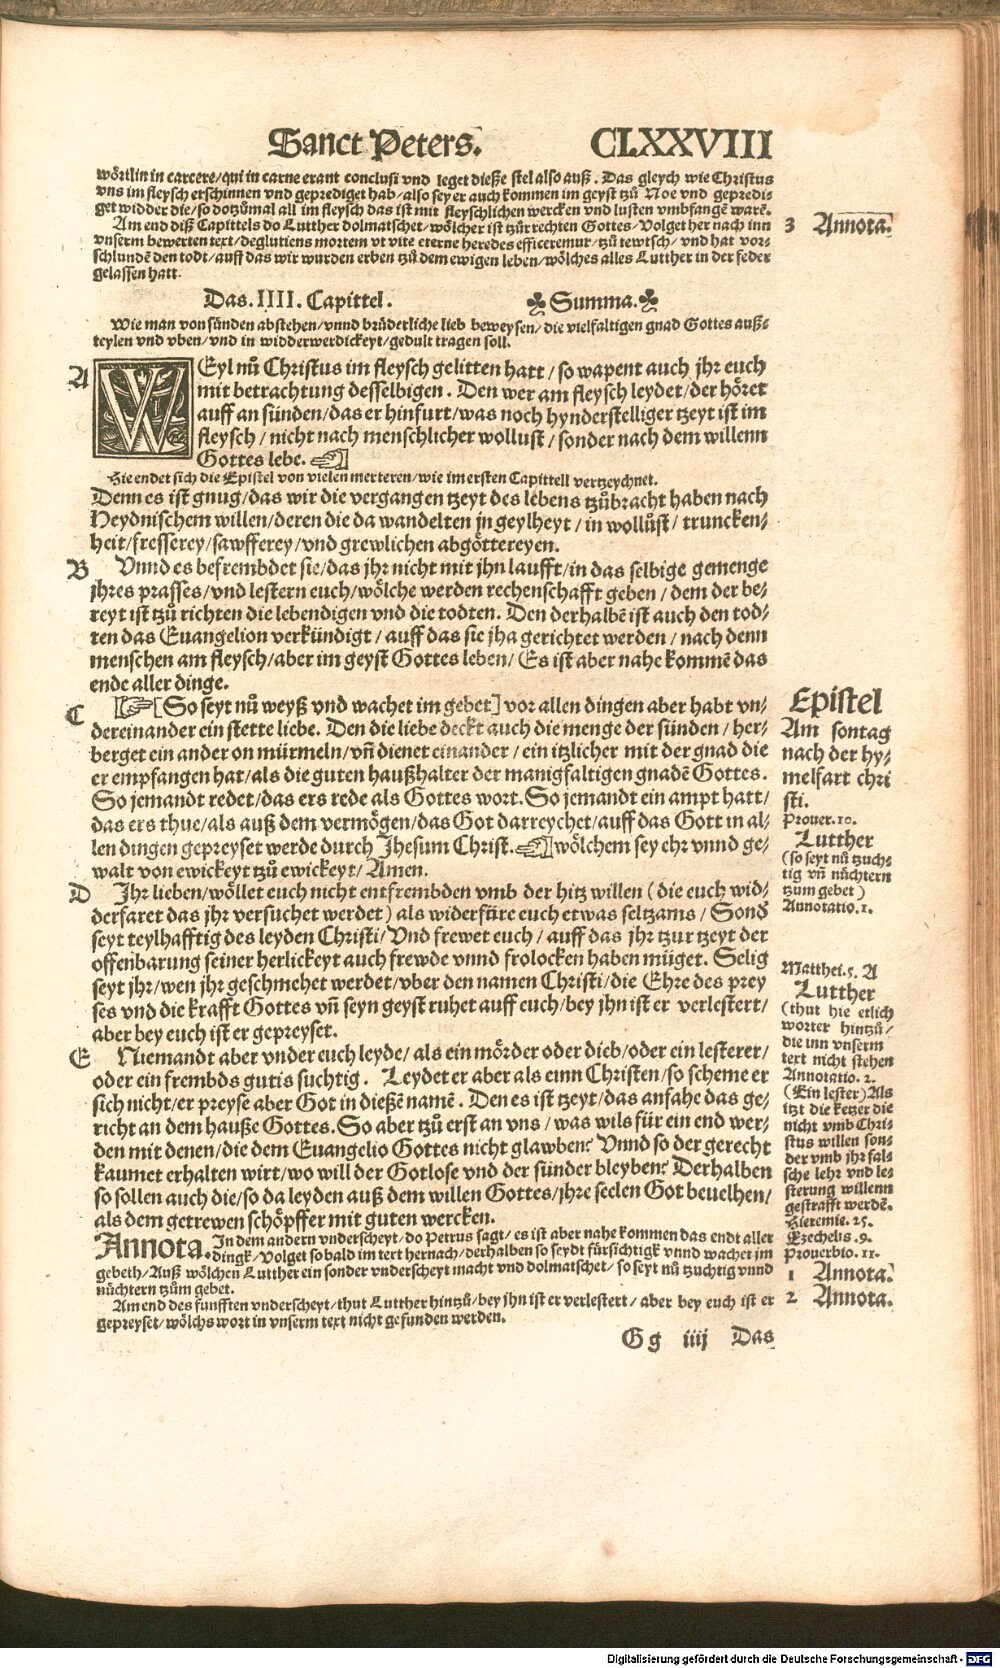 Sanct Peters. CLXXVIII
wörtlin in carcere/qui in carne erant conclusi vnd leget dieße stel also auß. Das gleych wie Christus
vns im fleysch erschinnen vnd geprediget hab/also sey er auch kommen im geyst tzů Noe vnd gepredi-
get widder die/so dotzůmal all im fleysch das ist mit fleyschlichen wercken vnd lusten vmbfangē warē.
Am end diß Capittels do Lutther dolmatschet/wölcher ist tzůr rechten Gottes/Volget her nach inn
vnserm bewerten text/deglutiens mortem vt vite eterne heredes efficeremur/tzů tewtsch/vnd hat vor-
schlundē den todt/auff das wir wurden erben tzů dem ewigen leben/wölches alles Lutther in der feder
gelassen hatt.
3 Annota.
Das.IIII.Capittel. ♣Summa.♣
Wie man von sünden abstehen/vnnd brüderliche lieb beweysen/die vielfaltigen gnad Gottes auß-
teylen vnd vben/vnd in widderwerdickeyt/gedult tragen soll.
A WEyl nů Christus im fleysch gelitten hatt/so wapent auch jhr euch
mit betrachtung desselbigen. Den wer am fleysch leydet/der höret
auff an sünden/das er hinfurt/was noch hynderstelliger tzeyt ist im
fleysch/nicht nach menschlicher wollust/sonder nach dem willenn
Gottes lebe.☜]
Hie endet sich die Epistel von vielen merteren/wie im ersten Capittell vertzeychnet.
Denn es ist gnug/das wir die vergangen tzeyt des lebens tzůbracht haben nach
Heydnischem willen/deren die da wandelten jn geylheyt/in wollůst/truncken-
heit/fresserey/sawfferey/vnd grewlichen abgöttereyen.
B Vnnd es befrembdet sie/das jhr nicht mit jhn laufft/in das selbige gemenge
jhres prasses/vnd lestern euch/wölche werden rechenschafft geben/dem der be-
reyt ist tzů richten die lebendigen vnd die todten. Den derhalbē ist auch den tod-
ten das Euangelion verkündigt/auff das sie jha gerichtet werden/nach denn
menschen am fleysch/aber im geyst Gottes leben/Es ist aber nahe kommē das
ende aller dinge.
C [☞[So seyt nů weyß vnd wachet im gebet] vor allen dingen aber habt vn-
dereinander ein stette liebe. Den die liebe deckt auch die menge der sünden/her-
berget ein ander on mürmeln/vñ dienet einander/ein itzlicher mit der gnad die
er empfangen hat/als die guten haußhalter der manigfaltigen gnadē Gottes.
So jemandt redet/das ers rede als Gottes wort. So jemandt ein ampt hatt/
das ers thue/als auß dem vermögen/das Got darreychet/auff das Gott in al-
len dingen gepreyset werde durch Jhesum Christ.☜]wölchem sey ehr vnnd ge-
walt von ewickeyt tzů ewickeyt/Amen.
Epistel
Am sontag
nach der hy-
melfart chri
sti.
Prouer.10.
Lutther
(so seyt nů tzuch-
tig vñ nüchtern
tzum gebet)
Annotatio.1.
D Jhr lieben/wöllet euch nicht entfrembden vmb der hitz willen (die euch wid-
derfaret das jhr versuchet werdet) als widerfüre euch etwas seltzams/Sond
seyt teylhafftig des leyden Christi/Vnd frewet euch/auff das jhr tzur tzeyt der
offenbarung seiner herlickeyt auch frewde vnnd frolocken haben müget. Selig
seyt jhr/wen jhr geschmehet werdet/vber den namen Christi/die Ehre des prey
ses vnd die krafft Gottes vñ seyn geyst ruhet auff euch/bey jhn ist er verlestert/
aber bey euch ist er gepreyset.
Matthei.5.A
Lutther
(thut hie etlich
wörter hintzů/
die inn vnserm
text nicht stehen
Annotatio.2.
E Niemandt aber vnder euch leyde/als ein mörder oder dieb/oder ein lesterer/
oder ein frembds gutis suchtig. Leydet er aber als einn Christen/so scheme er
sich nicht/er preyse aber Got in dießē namē. Den es ist tzeyt/das anfahe das ge-
richt an dem hauße Gottes. So aber tzů erst an vns/was wils für ein end wer-
den mit denen/die dem Euangelio Gottes nicht glawben? Vnnd so der gerecht
kaumet erhalten wirt/wo will der Gotlose vnd der sünder bleyben? Derhalben
so sollen auch die/so da leyden auß dem willen Gottes/jhre seelen Got beuelhen/
als dem getrewen schöpffer mit guten wercken.
(Ein lester)Als
itzt die ketzer die
nicht vmb Chri-
stus willen son-
der vmb jhr fal-
sche lehr vnd le-
sterung willenn
gestrafft werdē.
Hieremie.25.
Ezechelis.9.
Prouerbio.11.
Annota. In dem andern vnderscheyt/do Petrus sagt/es ist aber nahe kommen das endt aller
dingk/Volget so bald im text hernach/derhalben so seydt fürsichtigk vnnd wachet im
gebeth/Auß wölchen Lutther ein sonder vnderscheyt macht vnd dolmatschet/so seyt nů tzuchtig vnnd
nüchtern tzům gebet.
1 Annota.
Am end des funfften vnderscheyt/thut Lutther hintzů/bey jhn ist er verlestert/aber bey euch ist er
gepreyset/wölchs wort in vnserm text nicht gefunden werden.
2 Annota.
Gg iiij Das
Digitalisierung gefördert durch die Deutsche Forschungsgemeinschaft - DFG